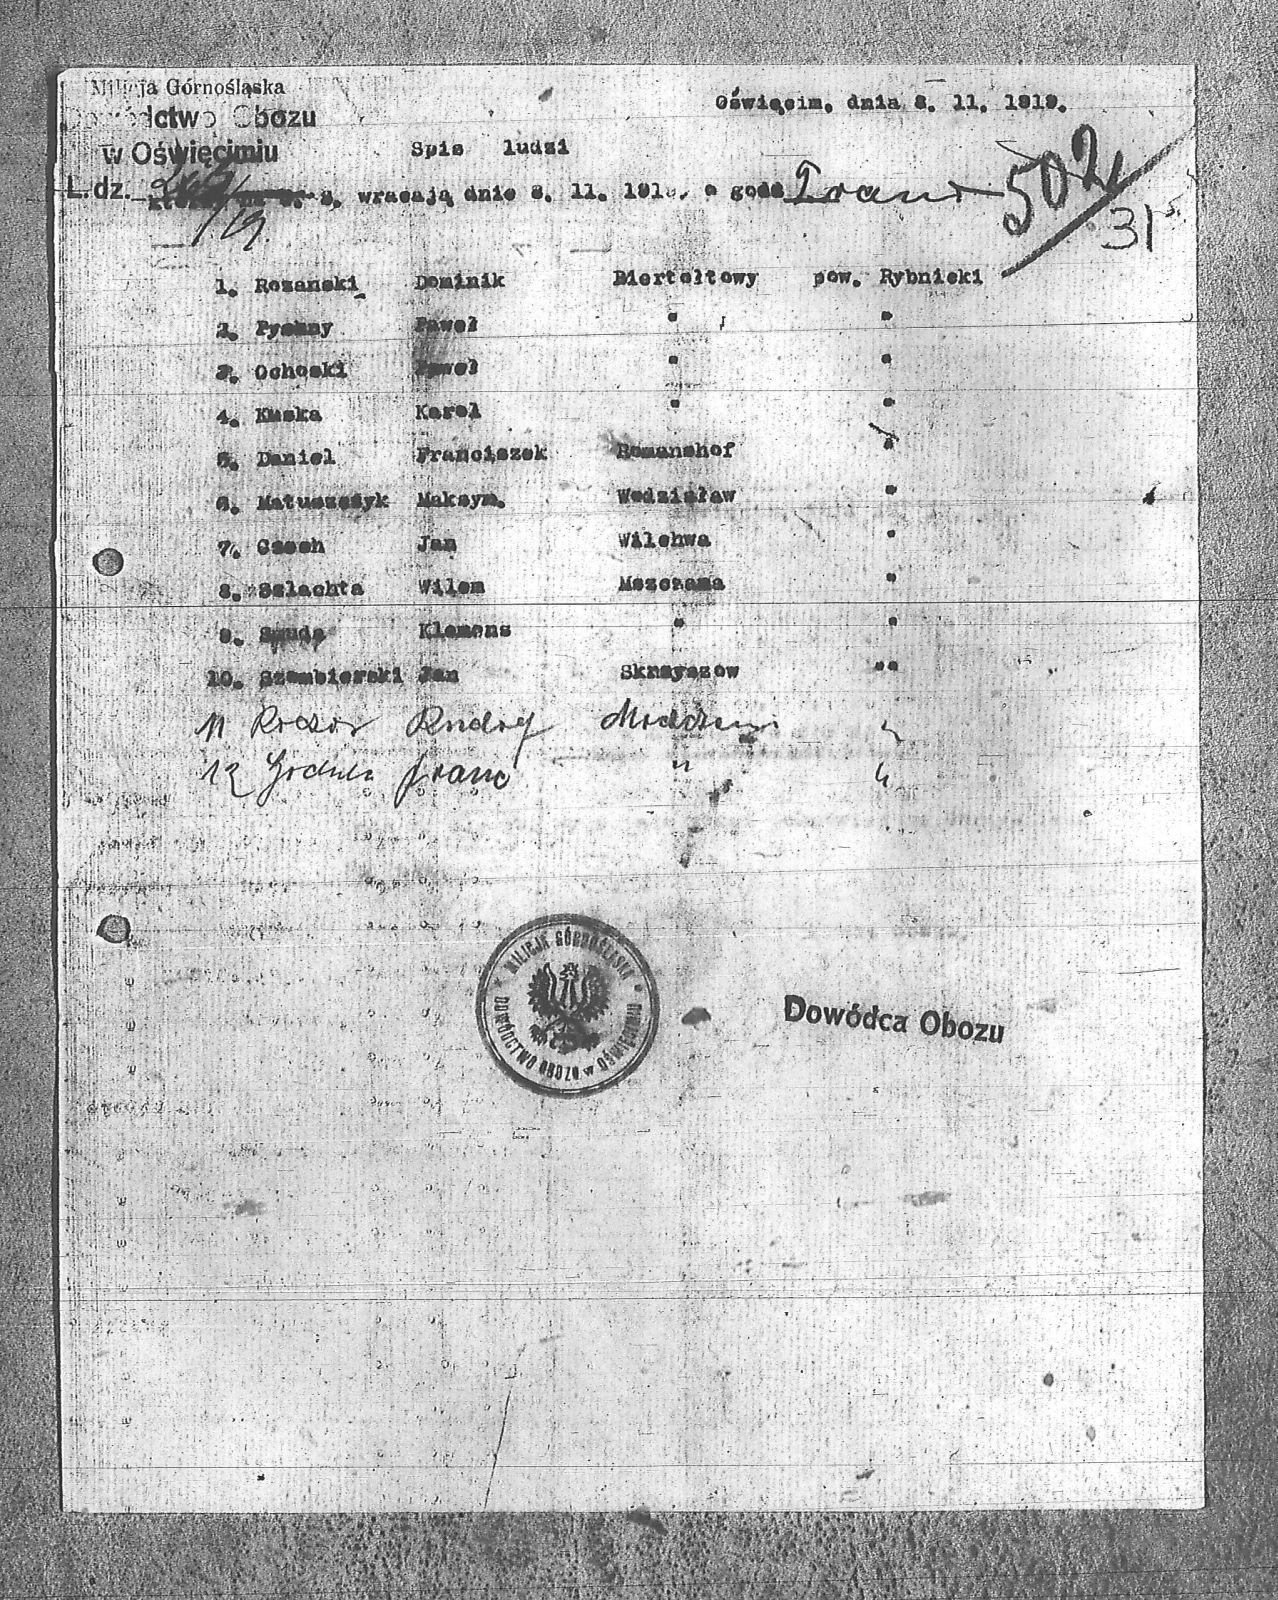 Milicja Górnośląska
Dowództwo Obozu
w Oświęcimiu
L. dz.
Oświęcim, dnia 8. 11. 1919.
Spis ludzi
wracają dnie 8. 11. 1919. o godz
502
31
1. Rozanski Dominik Biertołtowy pow. Rybnicki
2. Pyszny Paweł " "
3. Ochoski Paweł " "
4. Kuska Karol " "
5. Daniel Franciszek Romanshof "
6. Matuszczyk Maksym. Wodzisław "
7. Czech Jan Wilchwa "
8. Szlachta Wilem Mszczama "
9. Klemens " "
10. Szembierski Jan Skrzyszow "
11 "
12 Franc " "
MILICJA GÓRNOŚLĄSKA
DOWÓDCTWO OBOZU w OŚWIĘCIMIU
Dowódca Obozu